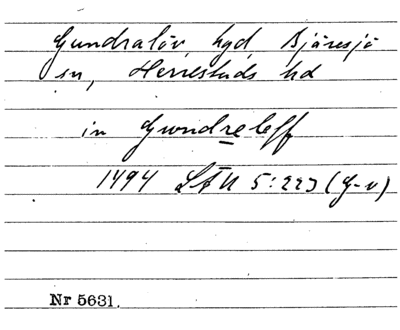 Gundralöv, hgd, Bjäresjö
sn, Herrestads hd
in Gundreleff
1494 LÄU 5:223 (G-v)
Nr 5631.